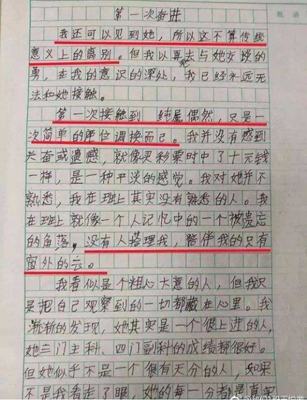 第一次奋进
我还可以见到她，所以这不算传统
意义上的离别。但我以再去与她交谈的
勇，在我的意识的深处，我已经永远无
法和她接触。
第一次接触到 纯属偶然，只是一
次简单的单位调换而已。我并没有感到
兴奋或遗憾，就像买彩票时中了十元钱
一样，是一种平淡的感觉。我对她并不
熟悉，我在班上其实没有熟悉的人。我
在班上就像一个人记忆中的一个被遗忘
的角落，没有人搭理我，陪伴我的只有
窗外的云。
我看似是个粗心大意的人，但我只
是把自己观察到的一切都藏在心里。我
渐渐的发现，她其实是一个很上进的人，
她三门主科、四门副科的成绩都很好。
但她似乎不是一个很有天分的人，如果
不是我看走了眼，她的每一分都是真实